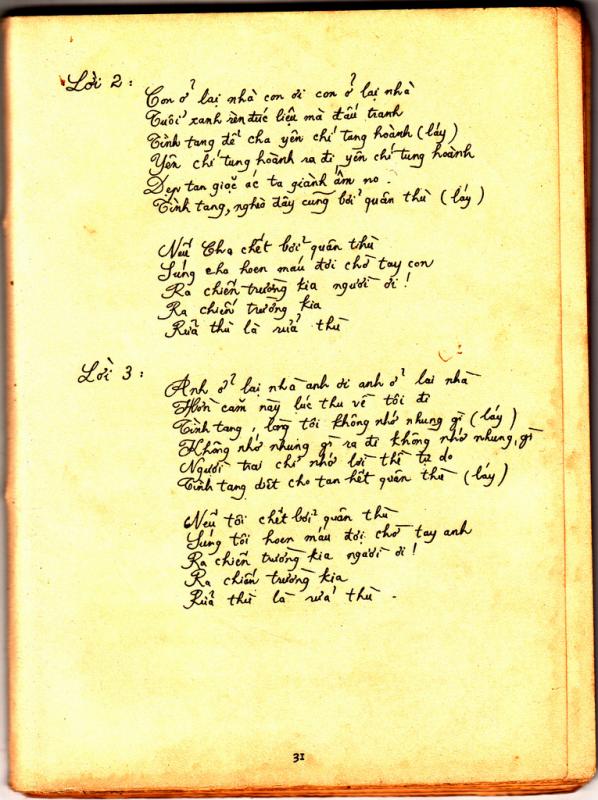 Lời 2 :
Con ở lại nhà con ơi con ở lại nhà
Tuổi xanh rèn đúc liệu mà đấu tranh
Tình tang để cha yên chí tang hoành (láy)
Yên chí tung hoành ra đi yên chí tung hoành
Dẹp tan giặc ác ta giành ấm no .
Tình tang, nghèo đây cũng bởi quân thù (láy)
Nếu Cha chết bởi quân thù
Súng cha hoen máu đợi chờ tay con
Ra chiến trường kia người ơi !
Ra chiến trường kia
Rửa thù là rửa thù
Lời 3 :
Anh ở lại nhà anh ơi anh ở lại nhà
Hờn căm này lúc thu về tôi đi
Tình tang, lòng tôi không nhớ nhung gì (láy)
Không nhớ nhung gì ra đi không nhớ nhung, gì
Người trai chỉ nhớ lời thề tự do
Tình tang diệt cho tan hết quân thù (láy)
Nếu tôi chết bởi quân thù
Súng tôi hoen máu đợi chờ tay anh
Ra chiến trường kia người ơi !
Ra chiến trường kia
Rửa thù là rửa thù .
31